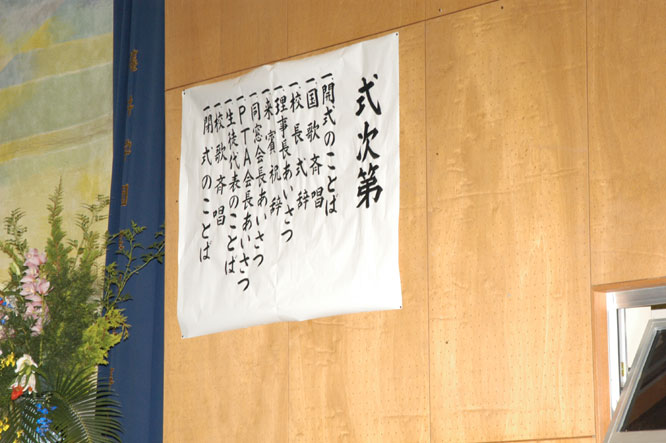 式次第
一開式のことば
一国歌斉唱
一校長式辞
一理事長あいさつ
一来賓祝辞
一同窓会長あいさつ
一PTA会長あいさつ
一生徒代表のことば
一校歌斉唱
一閉式のことば